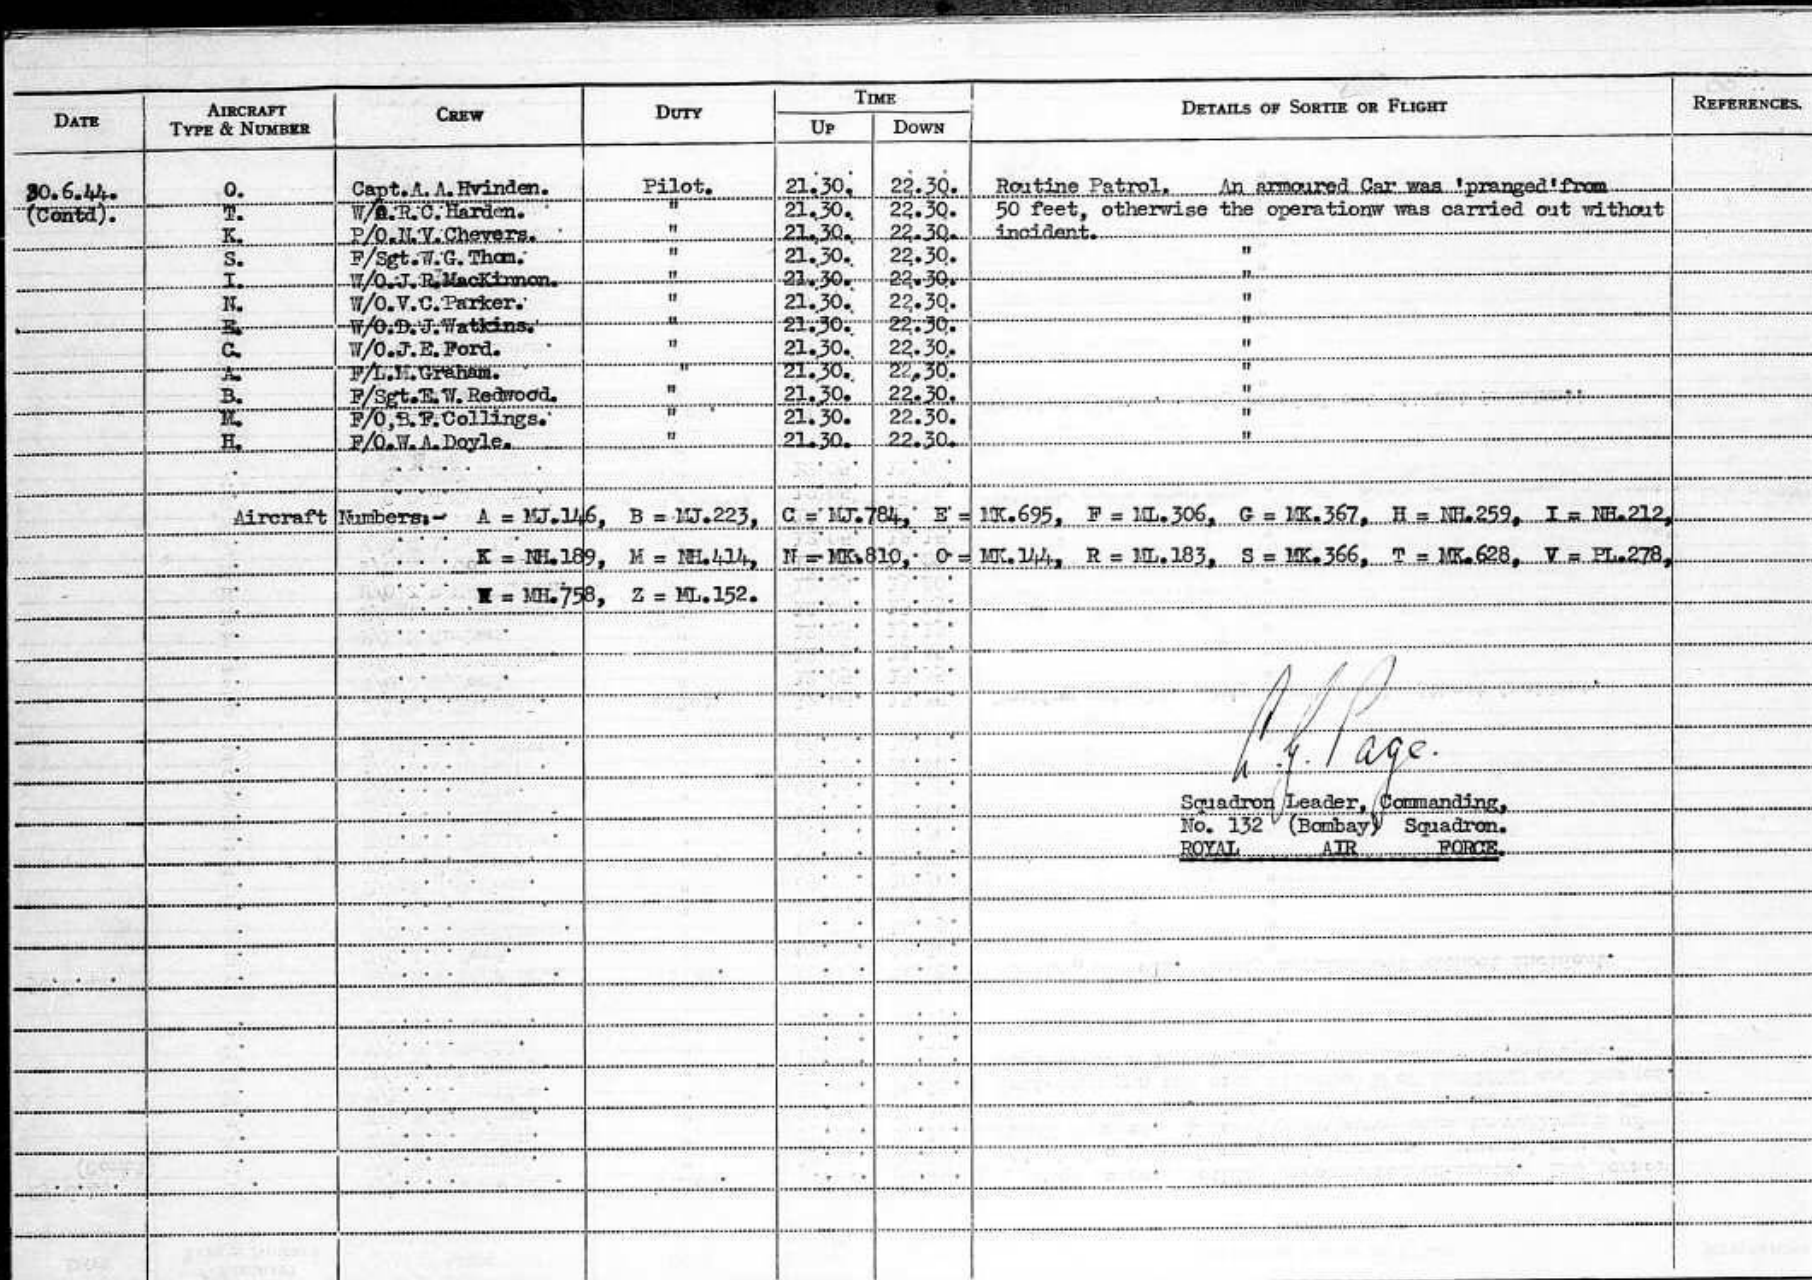 DATE AIRCRAFT TYPE & NUMBER CREW DUTY TIME UP DOWN DETAILS OF SORTIE OR FLIGHT REFERENCES.
30.6.44. O. Capt.A.A.Hvinden. Pilot. 21.30. 22.30. Routine Patrol. An armoured Car was 'pranged' from
(Contd). T. W/O.R.C.Harden. " 21.30. 22.30. 50 feet, otherwise the operationw was carried out without
K. P/O.N.V.Chevers. " 21.30. 22.30. incident.
S. F/Sgt.W.G.Thom. " 21.30. 22.30. "
I. W/O.J.R.MacKinnon. " 21.30. 22.30. "
N. W/O.V.C.Parker. " 21.30. 22.30. "
E. W/O.D.J.Watkins. " 21.30. 22.30. "
C. W/O.J.E.Ford. " 21.30. 22.30. "
A. F/L.M.Graham. " 21.30. 22.30. "
B. F/Sgt.E.W.Redwood. " 21.30. 22.30. "
M. F/O,B.F.Collings. " 21.30. 22.30. "
H. F/O.W.A.Doyle. " 21.30. 22.30. "
Aircraft Numbers:- A = MJ.146, B = MJ.223, C = MJ.784, E = MK.695, F = ML.306, G = MK.367, H = NH.259, I = NH.212,
K = NH.189, M = NH.414, N = MK.810, O = MK.144, R = ML.183, S = MK.366, T = MK.628, V = PL.278,
= MH.758, Z = ML.152.
Page.
Squadron Leader, Commanding,
No. 132 (Bombay) Squadron.
ROYAL AIR FORCE.